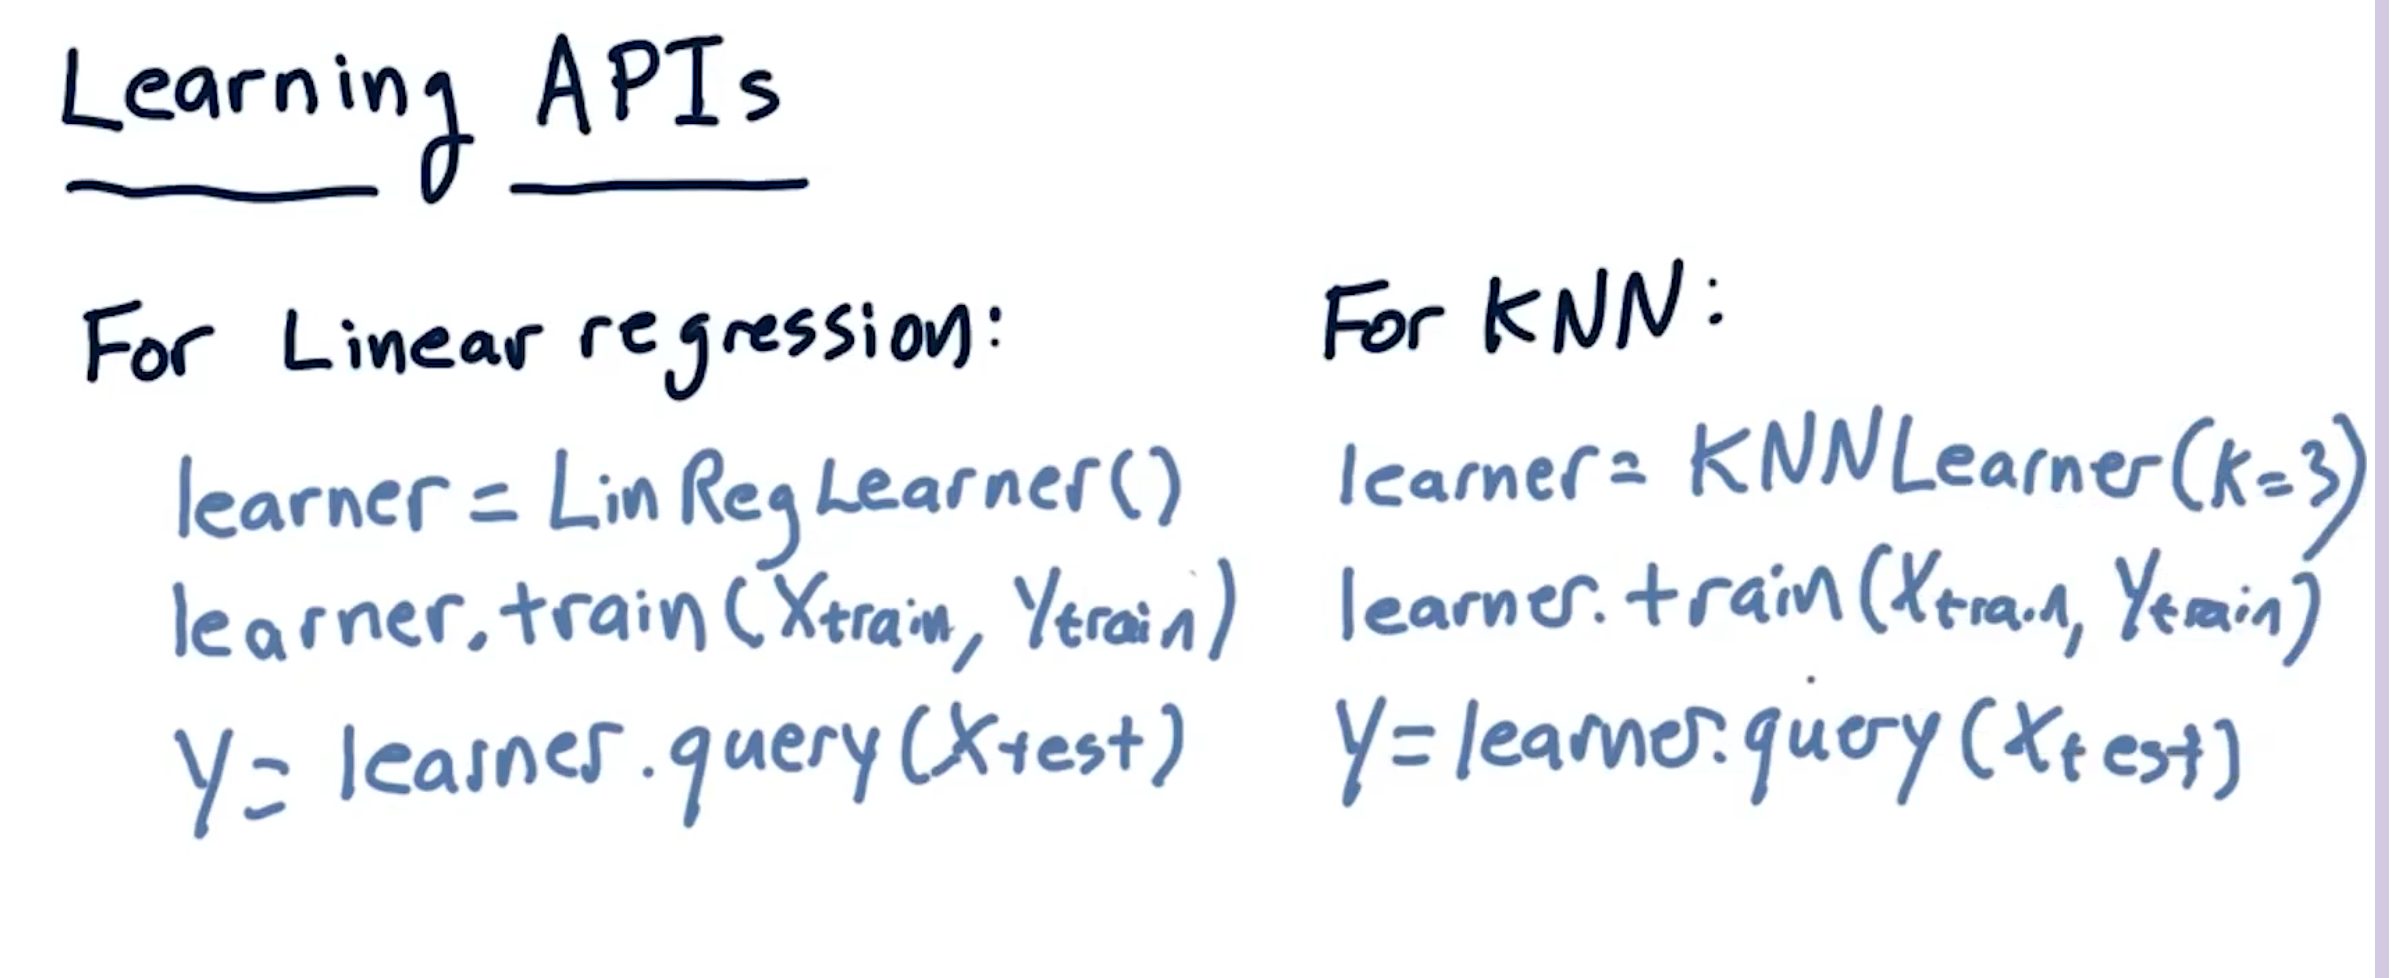 Learning APIs
For Linear regression:
learner = LinRegLearner()
learner.train(Xtrain, Ytrain)
y = learner.query(Xtest)
For KNN:
learner = KNNLearner(k=3)
learner.train(Xtrain, Ytrain)
y = learner.query(Xtest)